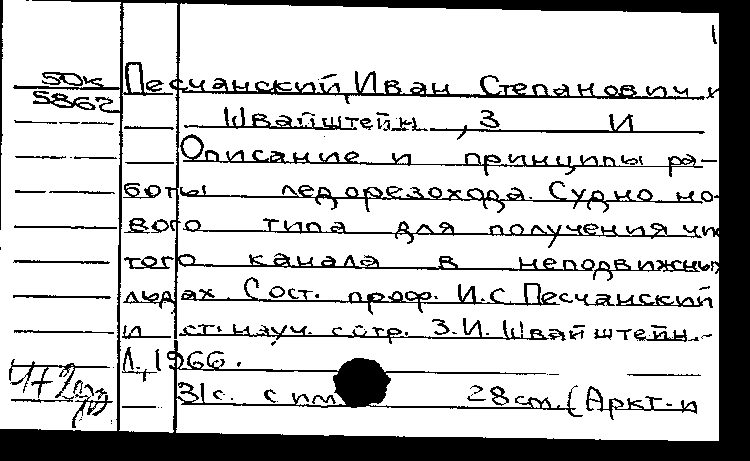 1
50к
5862
Песчанский, Иван Степанович и
Швайштейн, З И
Описание и принципы ра-
боты ледорезохода. Судно но-
вого типа для получения чис
того канала в неподвижных
льдах. Сост. проф. И.С. Песчанский
и ст. науч. сотр. З.И. Швайштейн.-
Л., 1966.
31с. с илл 28см. (Аркт. и